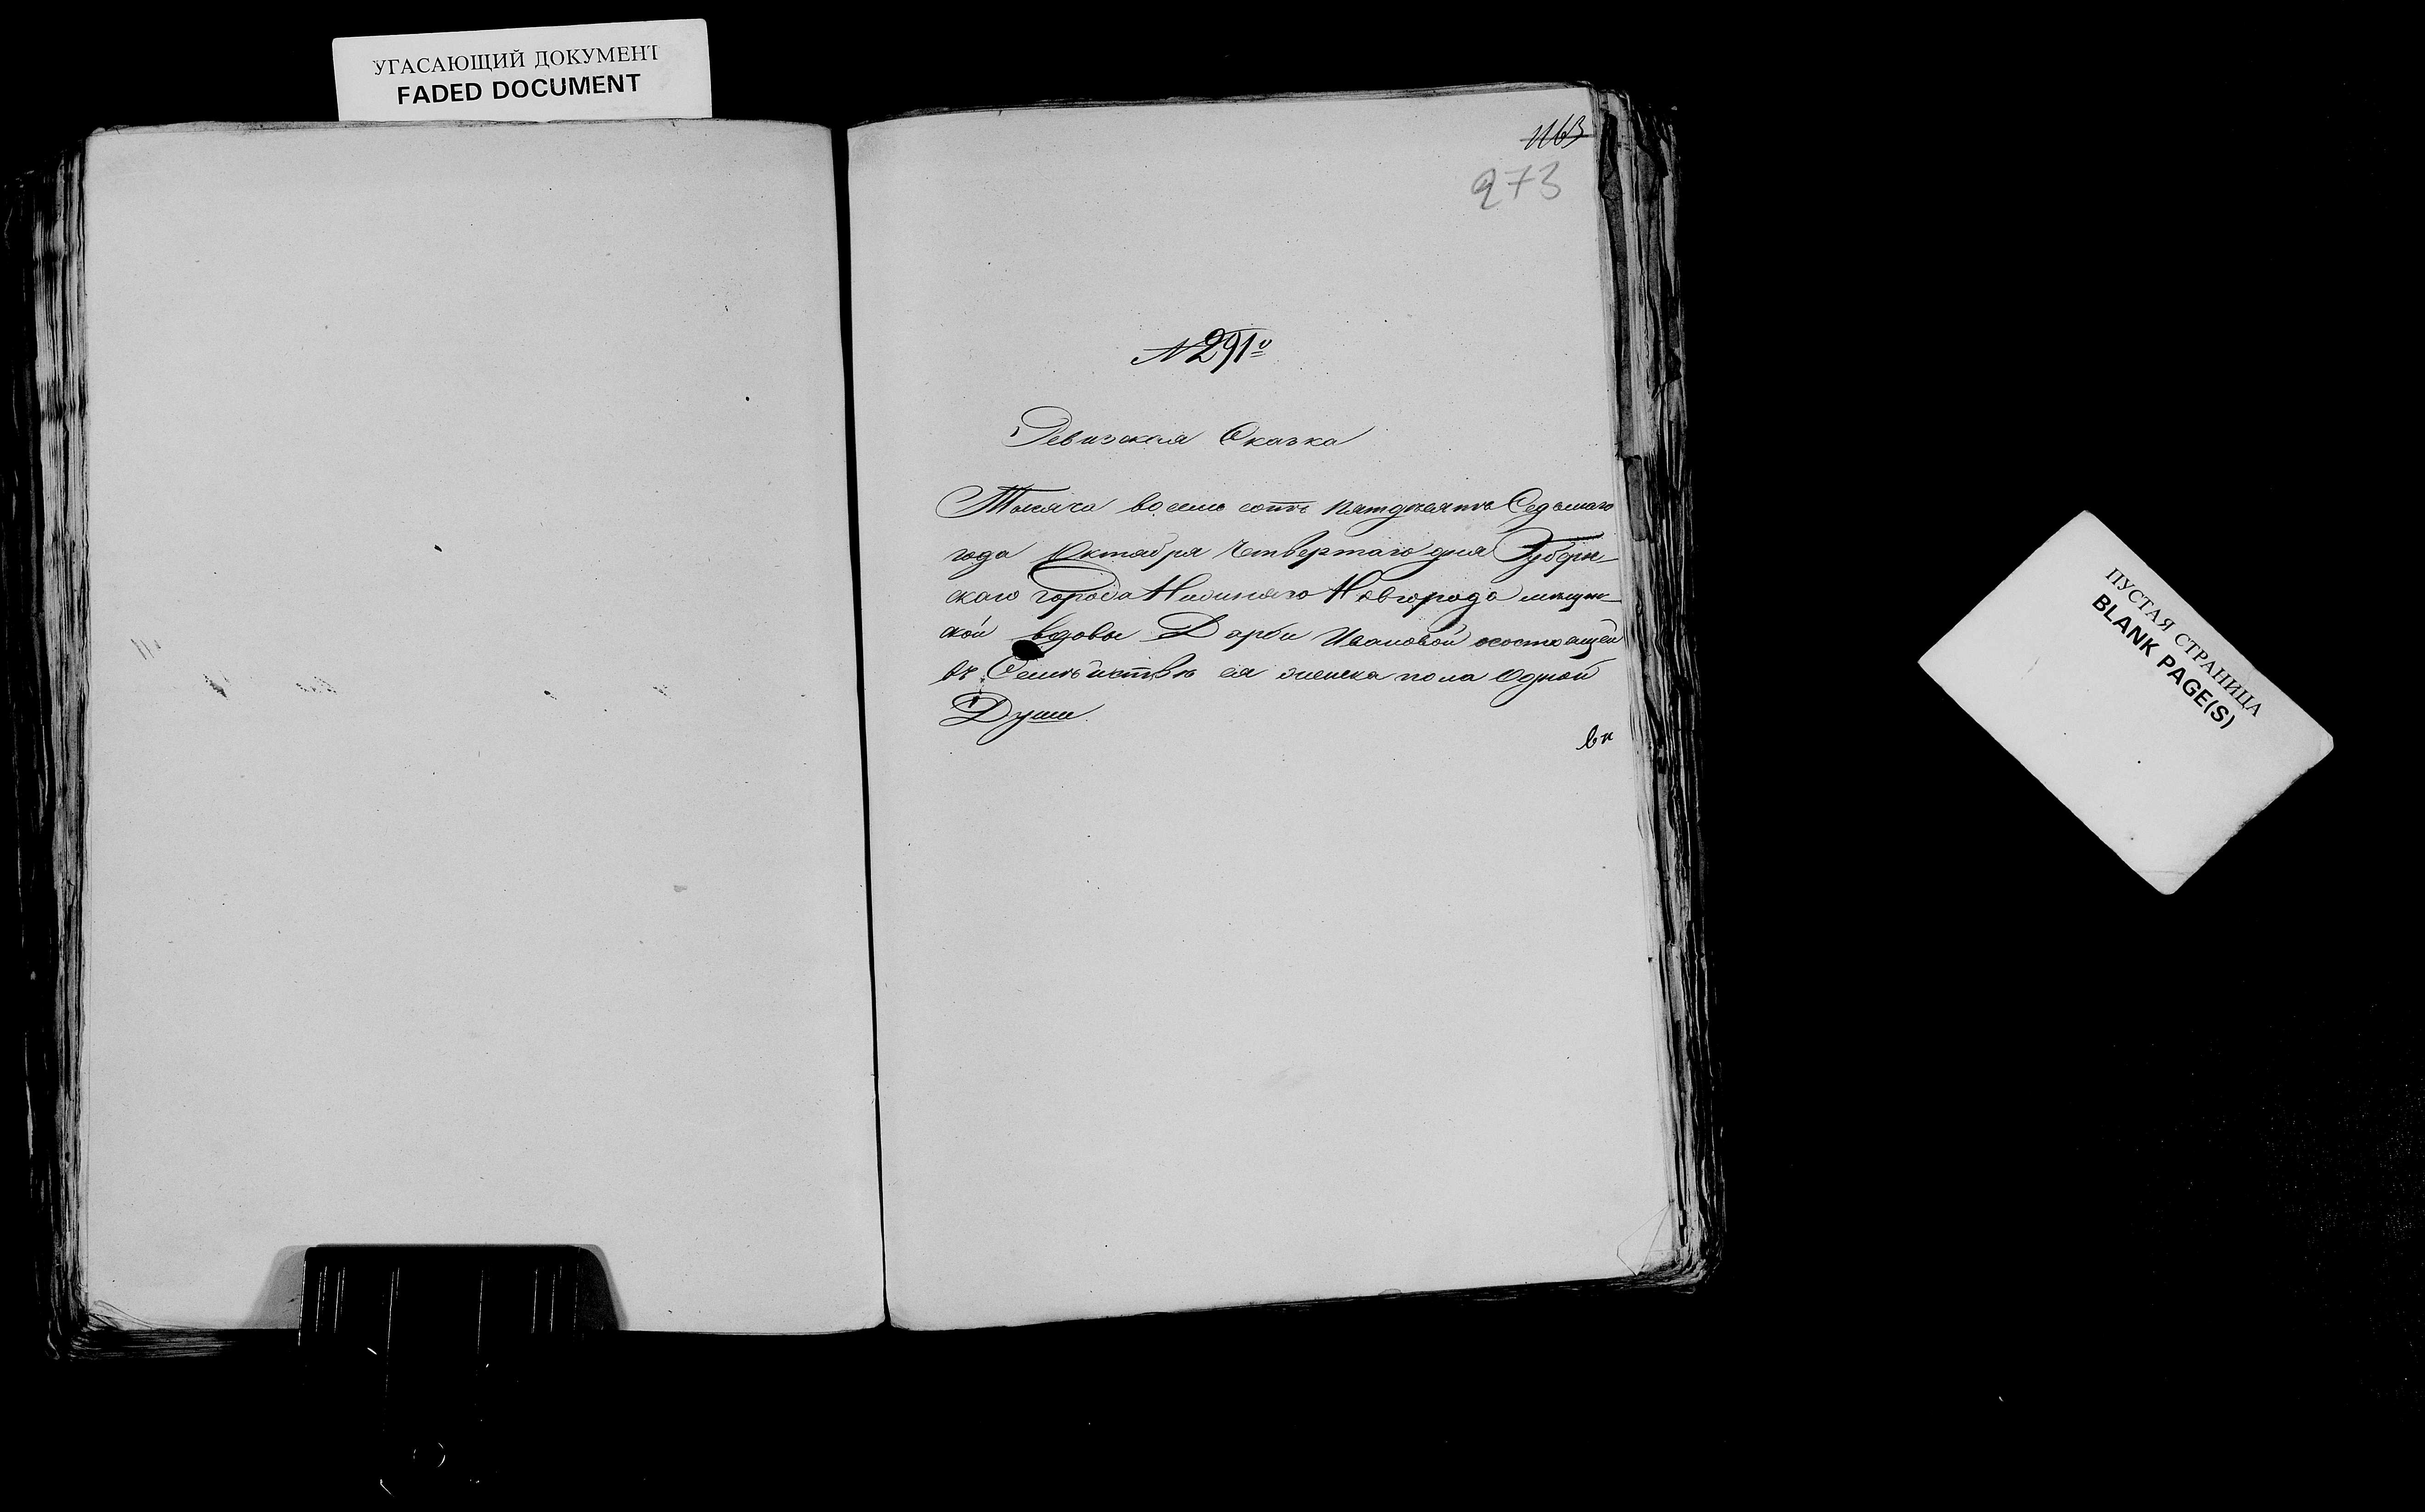 УГАСАЮЩИЙ ДОКУМЕНТ
FADED DOCUMENT
1163
273
№ 291й
Ревизская Сказка
Тысяча восемь сотъ пятдесятъ Седьмаго
года Октября Четвертаго дня Губерн-
скаго города Нижняго Новгорода мещан-
ской вдовы Дарьи Ивановой о состоящей
въ Семействѣ ея женска пола Одной
Души
ПУСТАЯ СТРАНИЦА
BLANK PAGE(S)